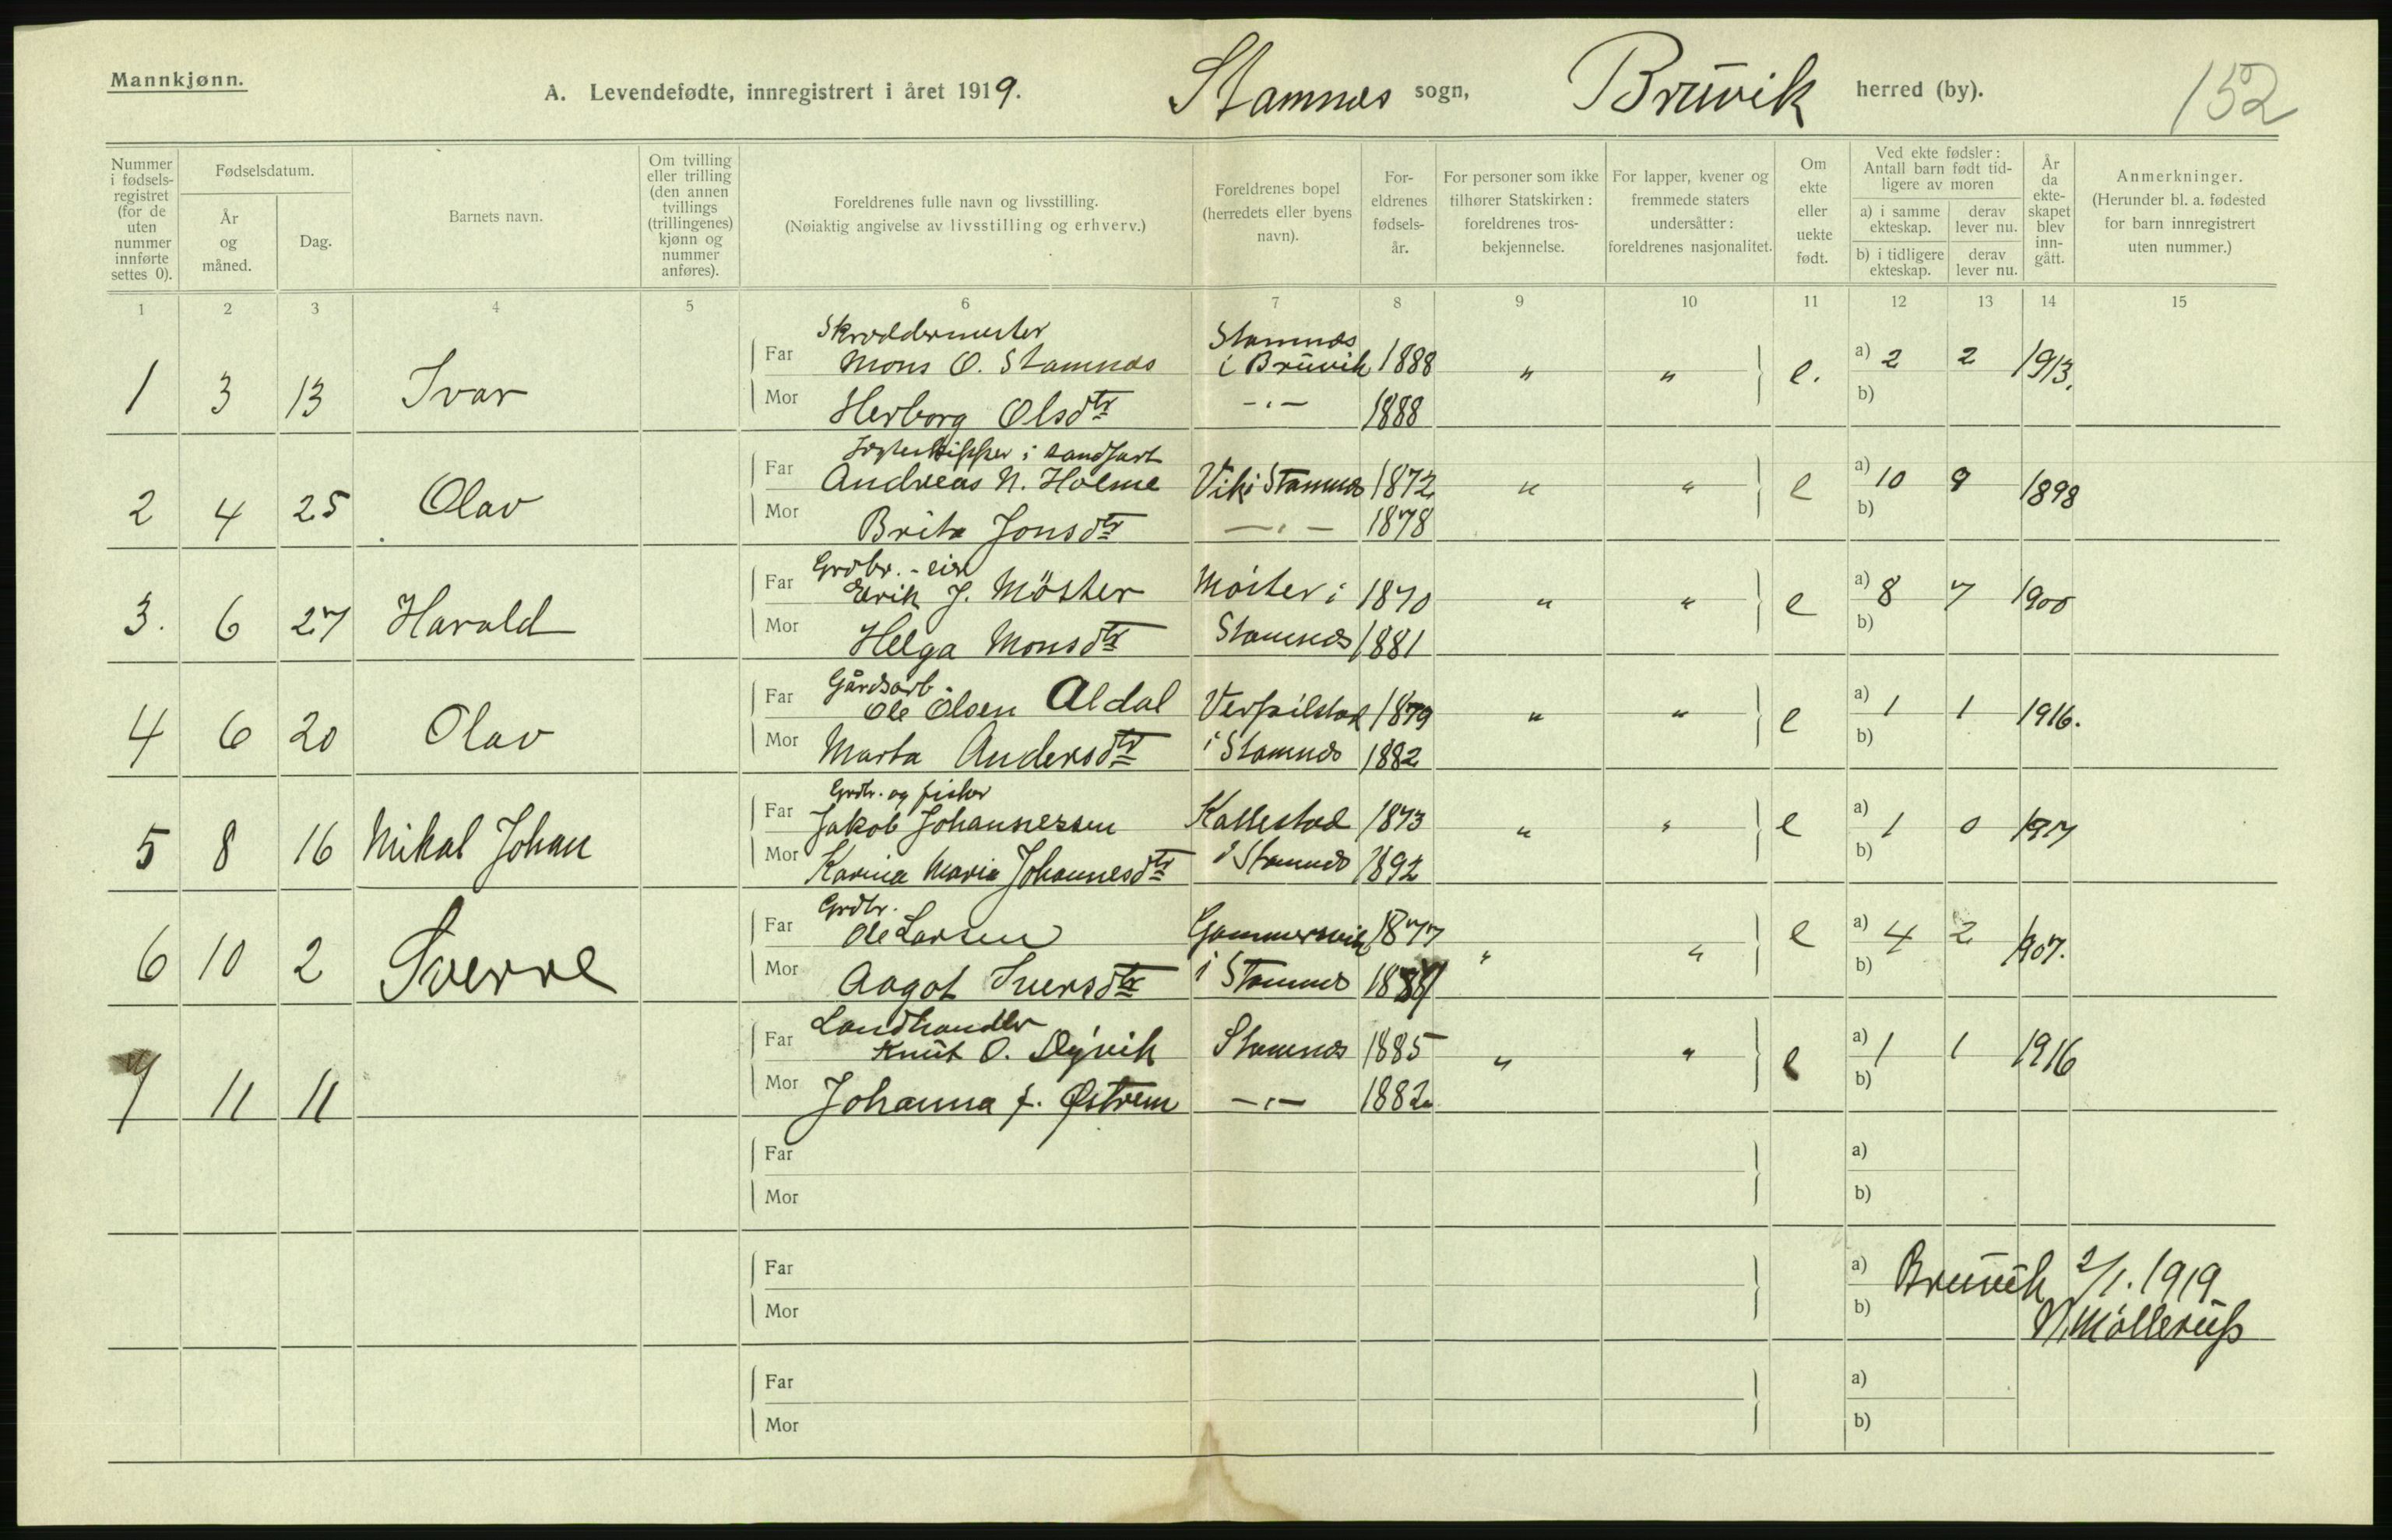 Mannkjønn.
A. Levendefødte, innregistrert i året 1919. Stamnes sogn, Bruvik herred (by). 152
Nummer i fødsels-registret (for de uten nummer innførte settes 0).
Fødselsdatum.
År og måned.
Dag.
Barnets navn.
Om tvilling eller trilling (den annen tvillings (trillingenes) kjønn og nummer anføres).
Foreldrenes fulle navn og livsstilling.
(Nøiaktig angivelse av livsstilling og erhverv.)
Foreldrenes bopel (herredets eller byens navn).
For-eldrenes fødsels-år.
For personer som ikke tilhører Statskirken: foreldrenes tros-bekjennelse.
For lapper, kvener og fremmede staters undersåtter: foreldrenes nasjonalitet.
Om ekte eller uekte født.
Ved ekte fødsler: Antall barn født tid-ligere av moren
a) i samme ekteskap.
derav lever nu.
b) i tidligere ekteskap.
derav lever nu.
År da ekte-skapet blev inn-gått.
Anmerkninger.
(Herunder bl. a. fødested for barn innregistrert uten nummer.)
1 2 3 4 5 6 7 8 9 10 11 12 13 14 15
Skræddermester Stamnes
Far Mons O. Stamnes i Bruvik 1888 " " a) 2 2 1913.
1 3 13 Ivar e.
Mor Herborg Olsdtr -"- 1888 b)
i
Far Andreas N. Holme Vik i Stamnes 1872 " " a) 10 9 1898
2 4 25 Olav e
Mor Brita Jonsdtr -"- 1878 b)
Grdbr. - eier
Far Erik J. Möster Möster i 1870 " " a) 8 7 1900
3. 6 27 Harald e
Mor Helga Monsdtr Stamnes 1881 b)
Gårdsarb.
Far Ole Olsen Aldal 1879 " " a) 1 1 1916.
4 6 20 Olav e
Mor Marta Andersdtr i Stamnes 1882 b)
Grdbr. og fisker
Far Jakob Johannessen Kallestad 1873 " " e a) 1 0 1917
5 8 16 Mikal Johan
Mor Karina Maria Johannesdtr i Stamnes 1892 b)
Grdbr.
Far Ole Larsen Gammersvik 1877 " " e a) 4 2 1907.
6 10 2 Sverre
Mor Aagot Iversdtr i Stamnes b)
Landhandler
Far Knut O. Dyvik Stamnes 1885 " " e a) 1 1 1916
7 11 11
Mor Johanna f. Østrem -"- 1882 b)
Far a)
Mor b)
Far a) Bruvik 2/1. 1919
Mor b) N. Møllerup
Far a)
Mor b)